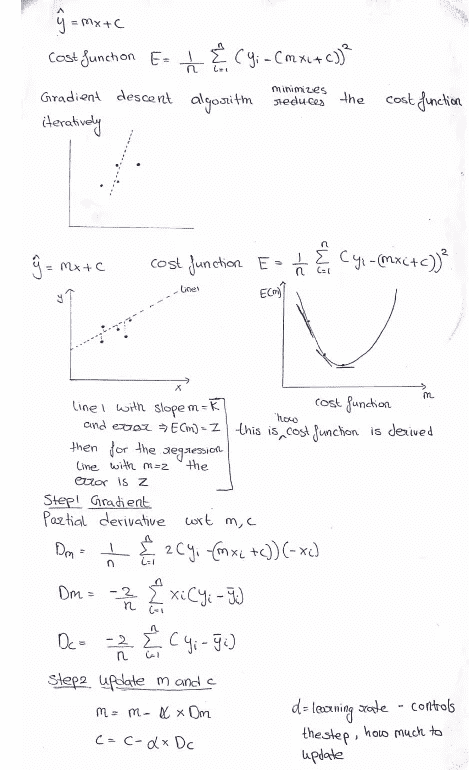 ŷ = mx+c
cost function E = 1/n Σ_{i=1}^{n} (yi - (mxi+c))²
Gradient descent algorithm minimizes reduces the cost function
iteratively
ŷ = mx+c cost function E = 1/n Σ_{i=1}^{n} (yi-(mxi+c))²
y line1 x
E(m) m
cost function
line 1 with slope m = K
and error ⇒ E(m) = Z
then for the regression
line with m=z the
error is Z
this is how cost function is derived
Step1 Gradient
Partial derivative wrt m, c
Dm = 1/n Σ_{i=1}^{n} 2(yi-(mxi+c))(-xi)
Dm = -2/n Σ_{i=1}^{n} xi(yi-ȳi)
Dc = -2/n Σ_{i=1}^{n} (yi-ȳi)
Step2 update m and c
m = m - α × Dm
c = c - α × Dc
d = learning rate - controls
the step, how much to
update